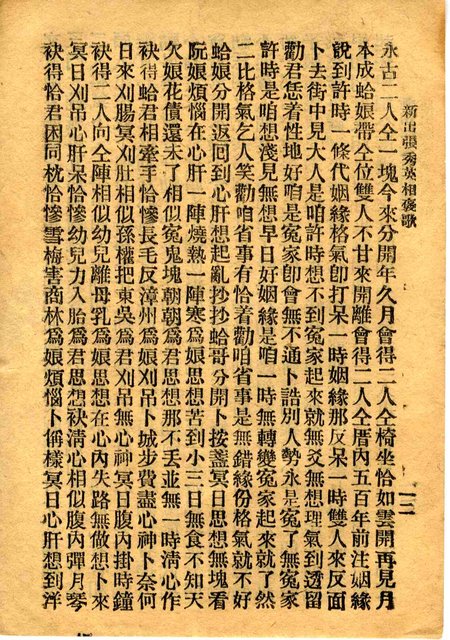 新出張秀英相褒歌
永古二人仝一塊今來分開年久月會得二人仝椅坐恰如雲開再見月
本成蛤娘帶仝位雙人不甘來開離會得二人仝厝內五百年前注姻緣
說到許時一條代姻緣格氣卽打呆一時姻緣那反呆一時雙人來反面
卜去街中見大人是咱許時想不到冤家起來就無爻無想理氣到透留
勸君恁着性地好咱是冤家卽會無不通卜誥別人勢永是冤了無冤家
許時是咱想淺見無想早日好姻緣是咱一時無轉變冤家起來就了然
二比格氣乞人笑勸咱省事有恰着勸咱省事是無錯緣份格氣就不好
蛤娘分開返囘到心肝想起亂抄抄蛤哥分開卜按盞冥日思想無塊看
阮娘煩惱在心肝一陣燒熱一陣寒爲娘思想苦到小三日無食不知天
欠娘花債還未了相似冤鬼塊朝朝爲君思想那不丟並無一時淸心作
袂得蛤君相牽手恰慘長毛反漳州爲娘刈吊卜城步費盡心神卜奈何
日來刈腸冥刈肚相似孫權把東吳爲君刈吊無心神冥日腹內掛時鐘
袂得二人向仝陣相似幼兒離母乳爲娘思想在心內失路無做想卜來
冥日刈吊心肝呆恰慘幼兒力入胎爲君思想袂淸心相似腹內彈月琴
袂得恰君困同枕恰慘雪梅害商林爲娘煩惱卜俑樣冥日心肝想到洋